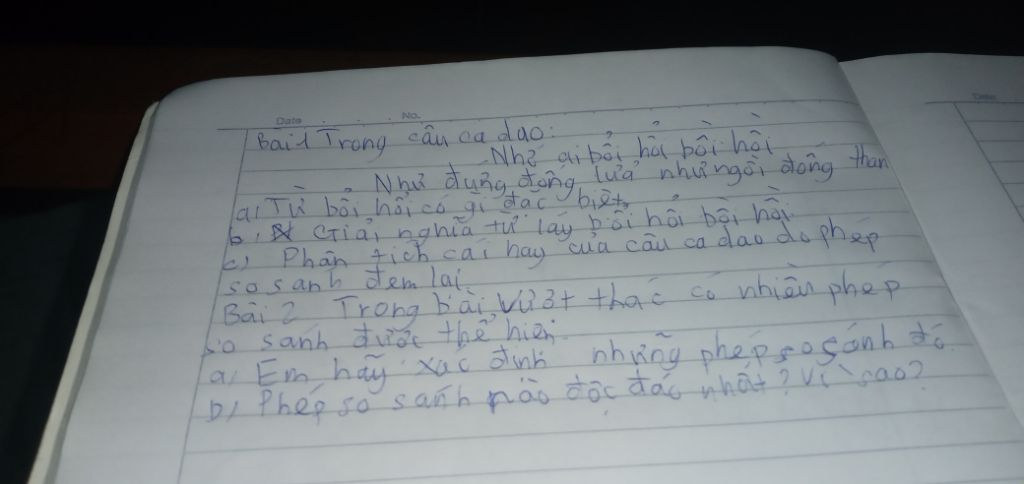 Date No.
Bài 1 Trong câu ca dao:
Nhớ ai bổi hổi bồi hồi
Như đứng đống lửa như ngồi đống than
a, Từ bổi hổi có gì đặc biệt
b, Giải nghĩa từ láy bổi hổi bồi hồi
c) Phân tích cái hay của câu ca dao do phép
so sánh đem lại
Bài 2 Trong bài, Vượt thác có nhiều phép
so sánh được thể hiện.
a, Em hãy xác định những phép so sánh đó.
b, Phép so sánh nào độc đác nhất? Vì sao?
Date